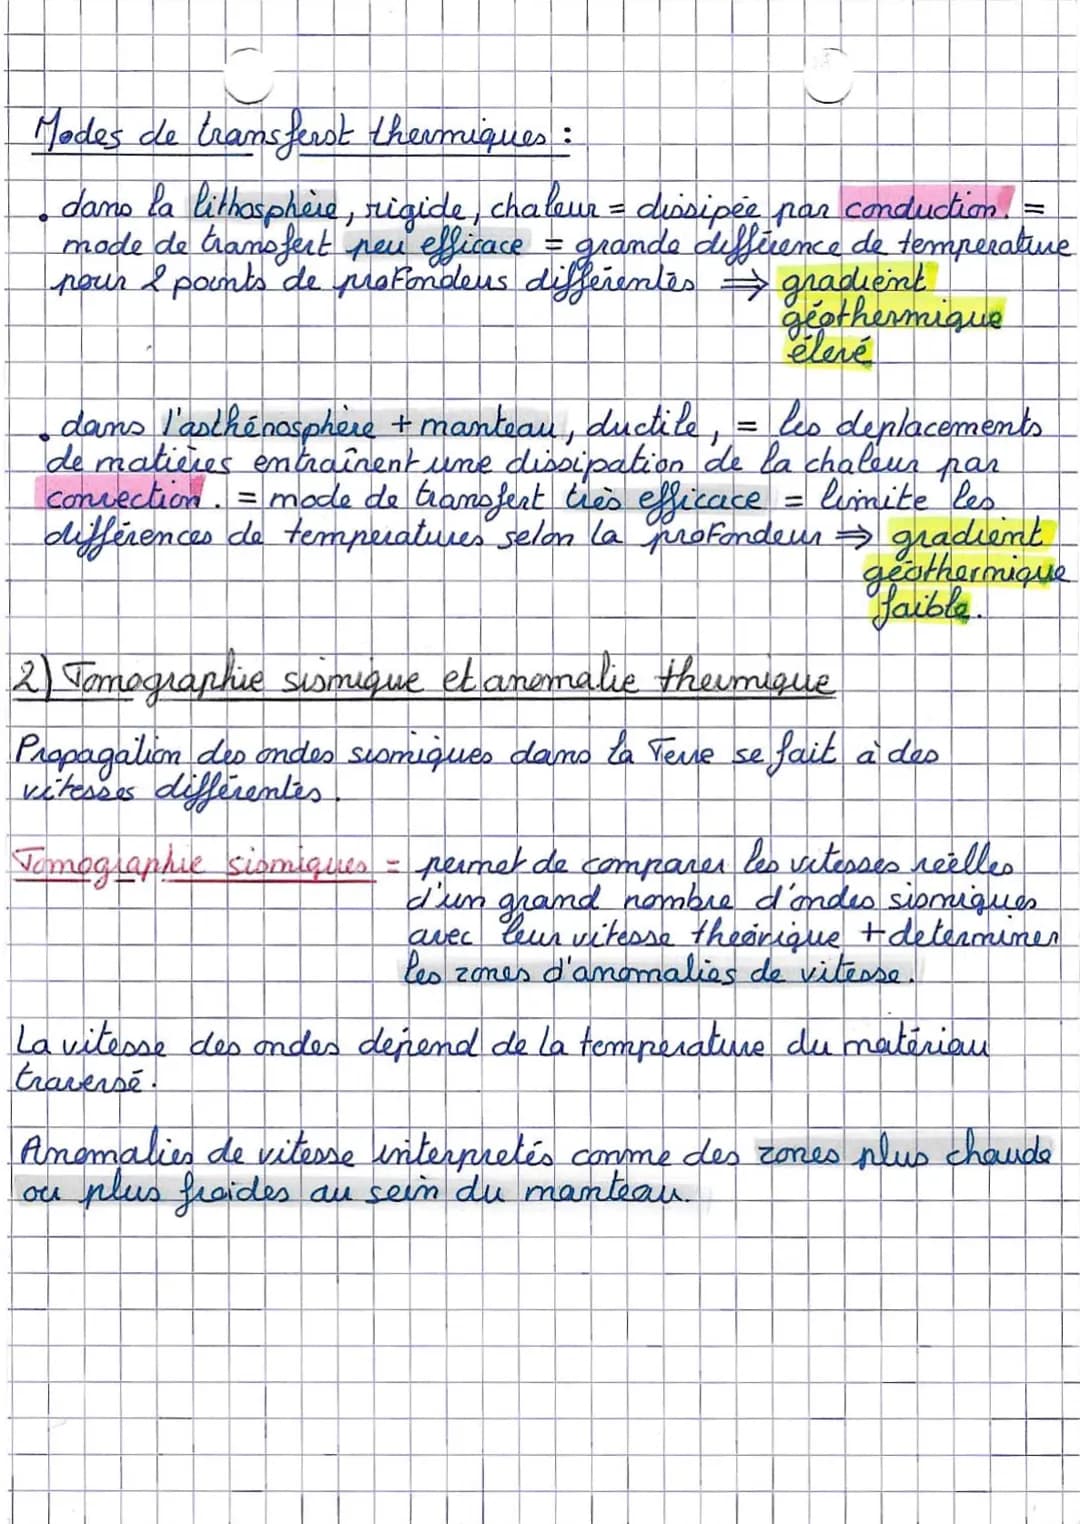 Modes de transferst thermiques :
. dans la lithosphère, rigide, chaleur = dissipée par conduction. =
mode de transfert peu efficace = grande différence de temperature
pour 2 points de profondeus différentes ⇒ gradient
géothermique
élevé
. dans l'asthénosphère + manteau, ductile, = les deplacements
de matières entraînent une dissipation de la chaleur par
convection. = mode de transfert très efficace = limite les
différences de temperatures selon la profondeur ⇒ gradient
géothermique
faible.
2) Tomographie sismique et anomalie thermique
Propagation des ondes sismiques dans la Terre se fait à des
vitesses différentes.
Tomographie sismiques = permet de comparer les vitesses réelles
d'un grand nombre d'ondes sismiques
avec leur vitesse théorique + determiner
les zones d'anomalies de vitesse.
La vitesse des ondes dépend de la température du matériau
traversé.
Anomalies de vitesse interpretés comme des zones plus chaude
ou plus froides au sein du manteau.